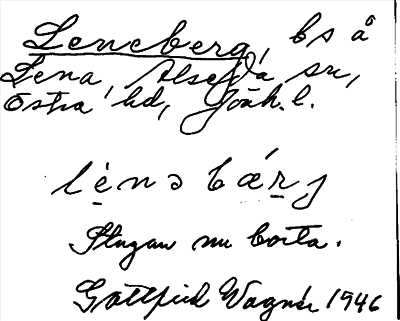 Leneberg, bs å
Lena, Alseda sn,
Östra hd, Jönk. l.
lènəbǽrj
Stugan nu borta.
Gottfrid Wagnér 1946